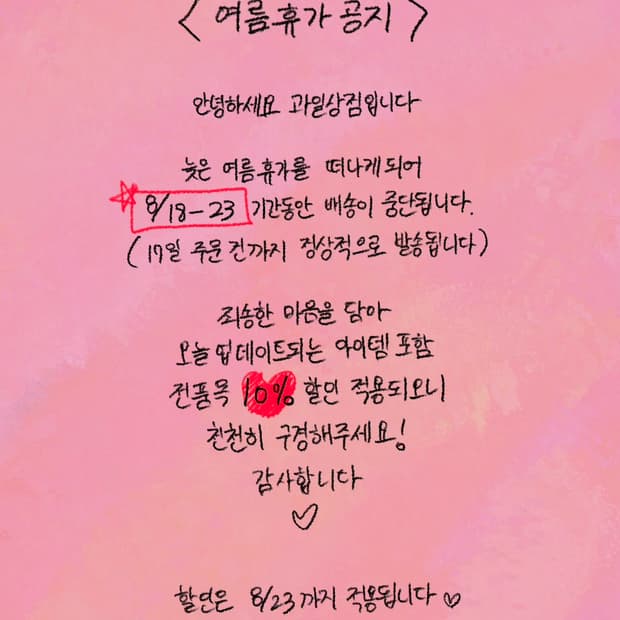 < 여름휴가 공지 >
안녕하세요 과일상점입니다
늦은 여름휴가를 떠나게되어
8/18-23 기간동안 배송이 중단됩니다.
(17일 주문건까지 정상적으로 발송됩니다)
죄송한 마음을 담아
오늘 업데이트되는 아이템 포함
전품목 10% 할인 적용되오니
천천히 구경해주세요!
감사합니다
할인은 8/23까지 적용됩니다